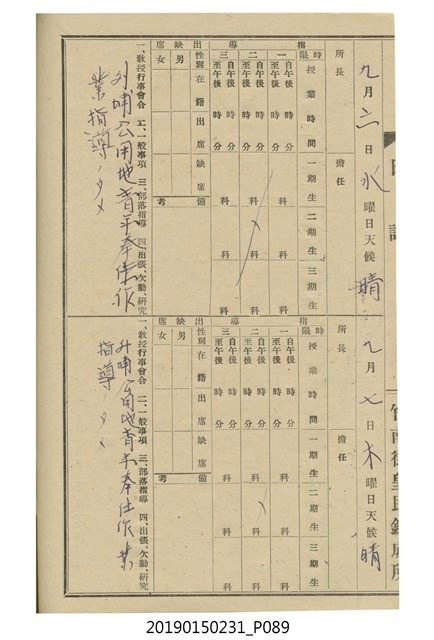 日誌
九月六日水曜日天候晴
所長
擔任
指導
時限
授業時間
一期生
二期生
三期生
一
自午後時分
至午後時分
科
科
科
二
自午後時分
至午後時分
科
科
科
三
自午後時分
至午後時分
科
科
科
出缺席
性別
在籍
出席
缺席
備考
男
女
一、教授行事會合 二、一般事項 三、部落指導 四、出張、欠勤、研究
外埔公用地青年奉仕作
業指導
九月七日木曜日天候晴
所長
擔任
指導
時限
授業時間
一期生
二期生
三期生
一
自午後時分
至午後時分
科
科
科
二
自午後時分
至午後時分
科
科
科
三
自午後時分
至午後時分
科
科
科
出缺席
性別
在籍
出席
缺席
備考
男
女
一、教授行事會合 二、一般事項 三、部落指導 四、出張、欠勤、研究
外埔公用地青年奉仕作業
指導
20190150231_P089